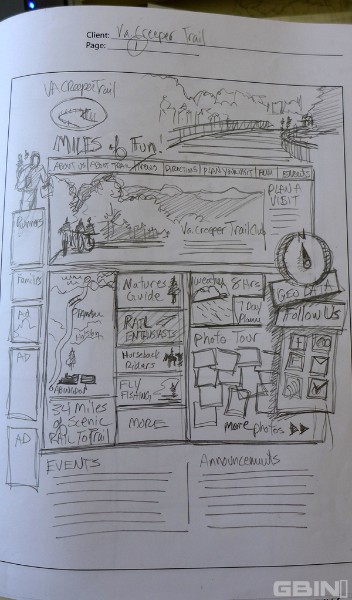 Client: Va. Creeper Trail
Page: 1
VA. CREEPER TRAIL
MILES of FUN!
ABOUT US
DIRECTIONS
PLAN YOUR VISIT
EVENTS
PLAN A
VISIT
Va. Creeper Trail Club
Runners
Families
Ad
AD
AD
ABINGDON
34 Miles
of Scenic
RAIL TO TRAIL
Natures
Guide
RAIL
ENTHUSIASTS
Horseback
Riders
FLY
FISHING
MORE
weather
8 Hrs
7 Day
Planner
PHOTO TOUR
more photos
GEO DATA
Follow Us
EVENTS
Announcements
GBIN